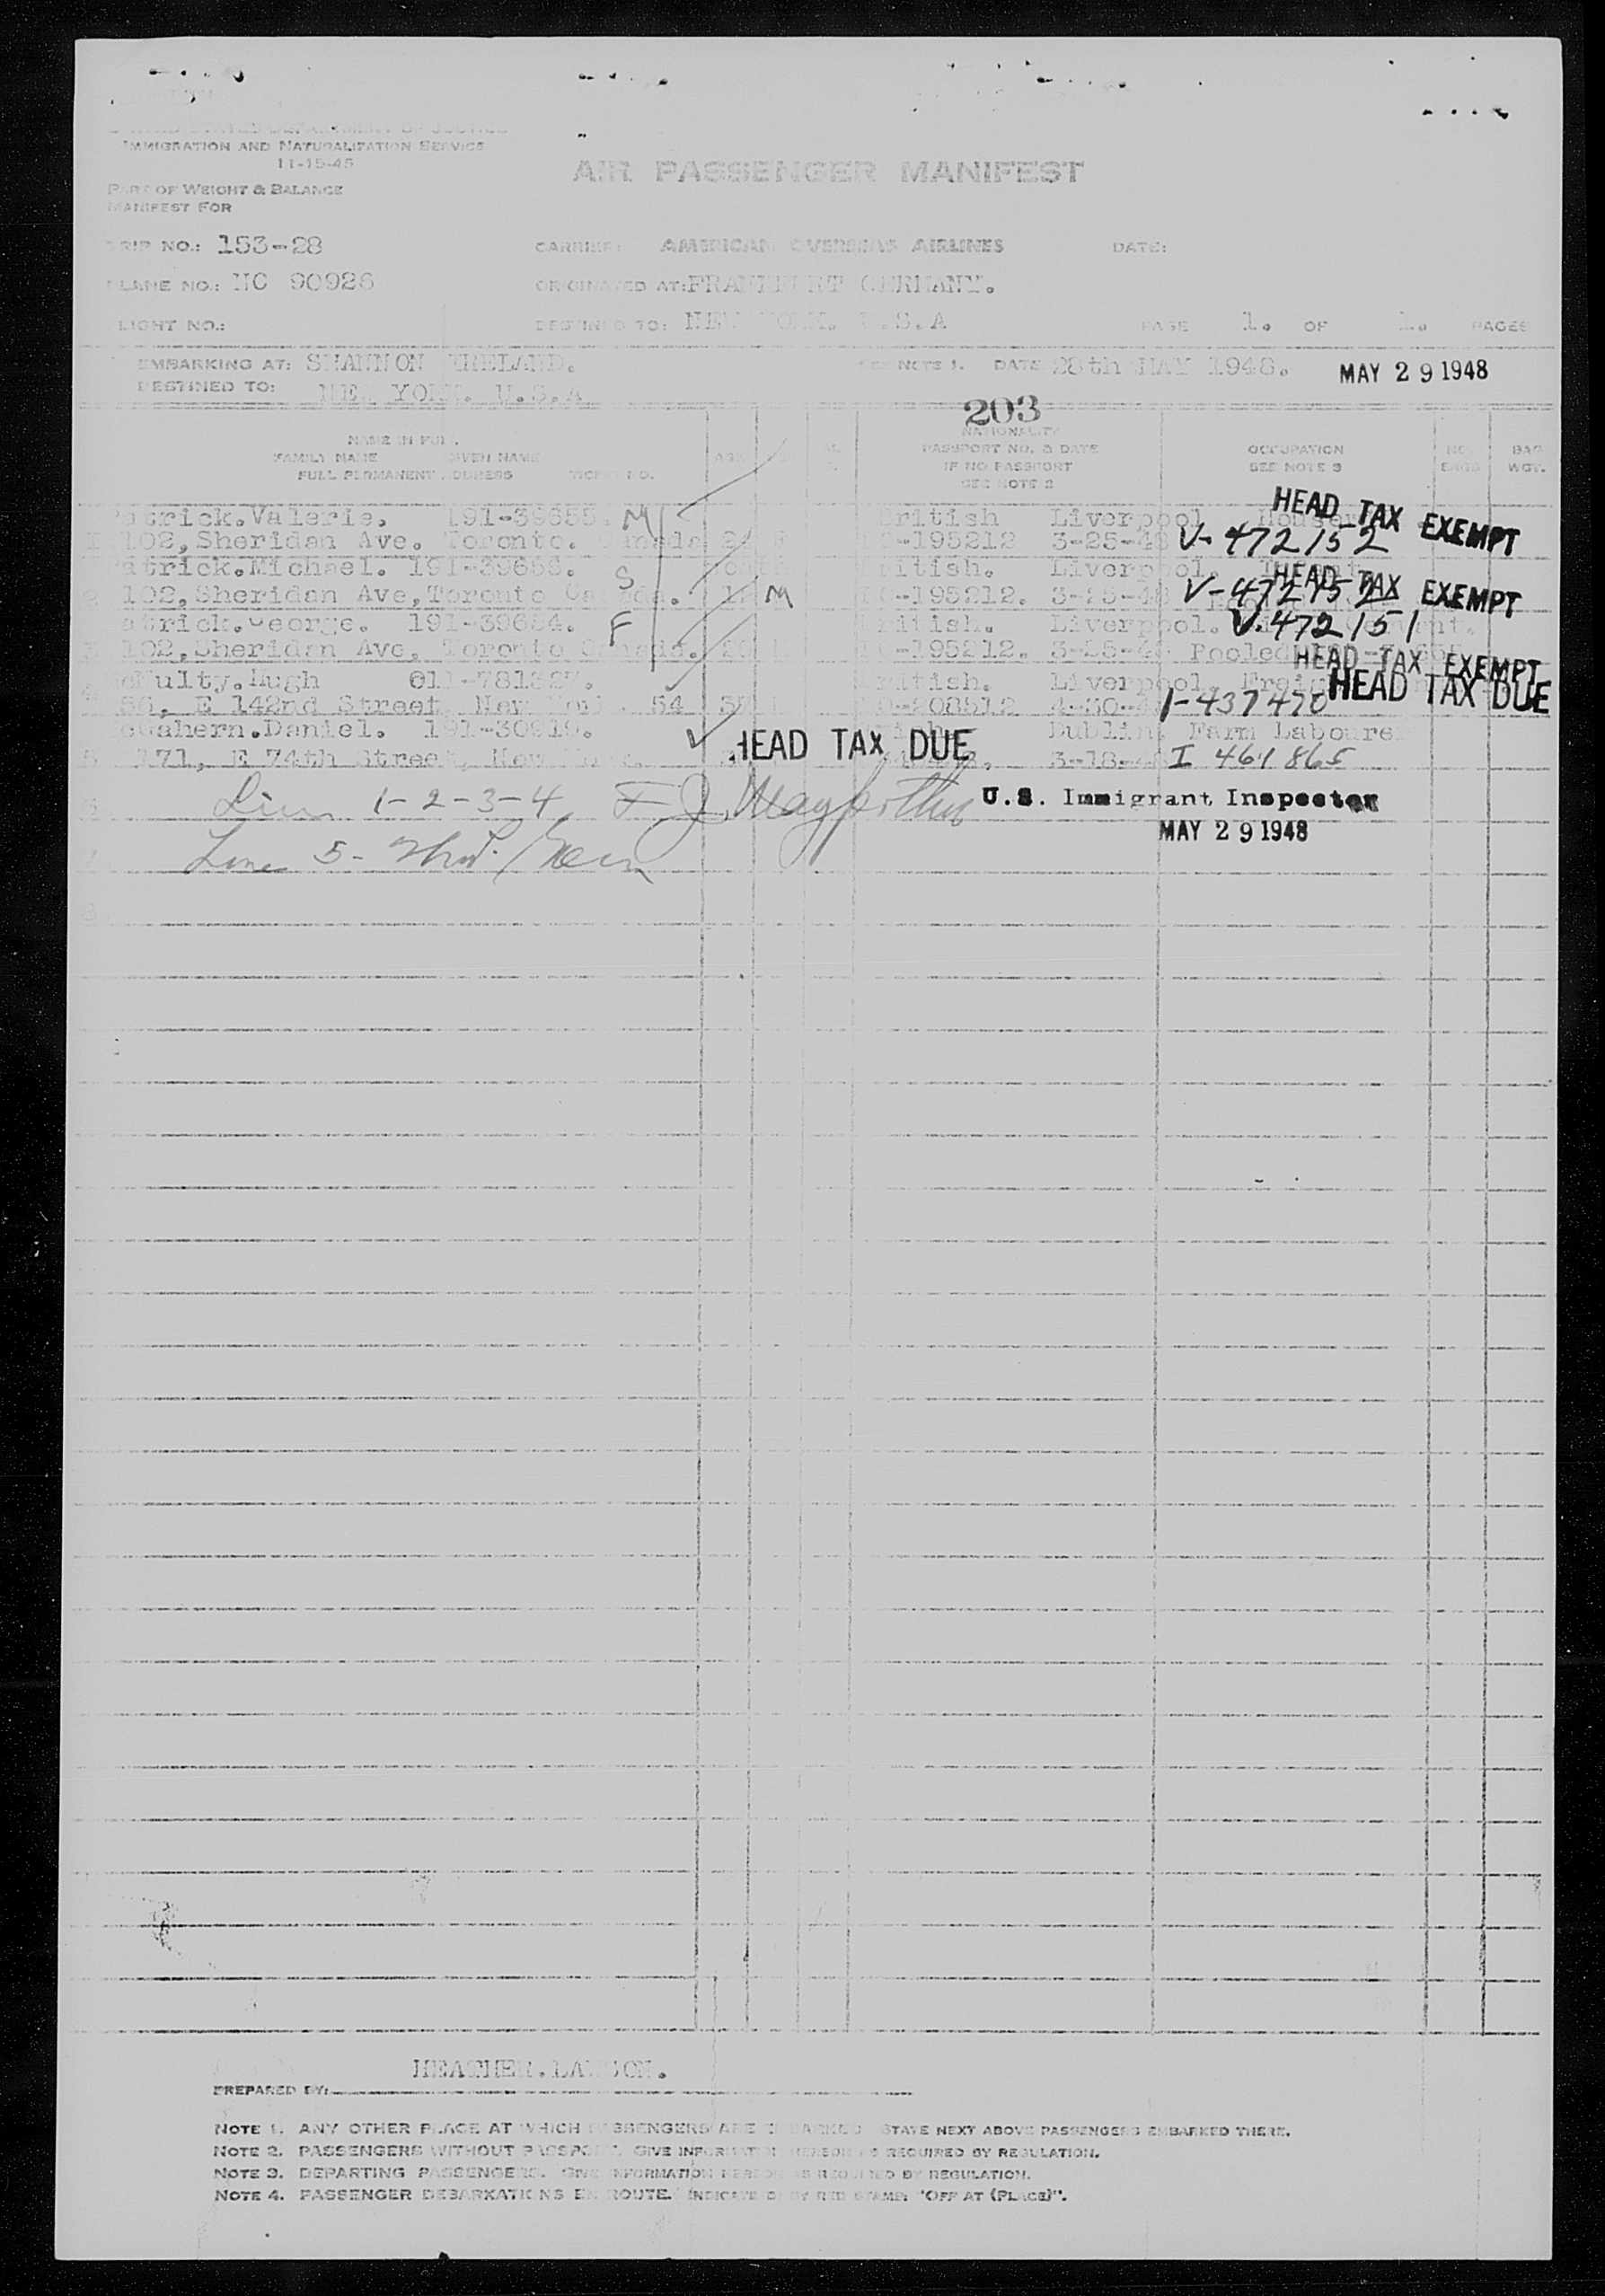 UNITED STATES DEPARTMENT OF JUSTICE
IMMIGRATION AND NATURALIZATION SERVICE
11-15-45
AIR PASSENGER MANIFEST
PART OF WEIGHT & BALANCE
MANIFEST FOR
TRIP NO.: 153-28 CARRIER: AMERICAN OVERSEAS AIRLINES DATE:
PLANE NO.: NC 90926 ORIGINATED AT: FRANKFURT GERMANY.
FLIGHT NO.: DESTINED TO: NEW YORK. U.S.A PAGE 1. OF 1. PAGES
EMBARKING AT: SHANNON IRELAND. SEE NOTE 1. DATE 28th MAY 1948. MAY 29 1948
DESTINED TO: NEW YORK. U.S.A
203
NAME IN FULL NATIONALITY
FAMILY NAME GIVEN NAME AGE PASSPORT NO. & DATE OCCUPATION NO. BAG
FULL PERMANENT ADDRESS TICKET NO. IF NO PASSPORT SEE NOTE 3 WGT.
SEE NOTE 2
HEAD TAX EXEMPT
atrick.Valerie. 191-39655. M British Liverpool
102, Sheridan Ave. Toronto. Canada -195212 3-25-48 V-472152
atrick.Michael. 191-39656. S British. Liverpool. HEAD TAX EXEMPT
102, Sheridan Ave, Toronto Canada. M -195212. 3-25-48 V-472152
atrick.George. 191-39654. F British. Liverpool. V-472151
102, Sheridan Ave, Toronto Canada. -195212. 3-25-48 HEAD TAX EXEMPT
Nulty.Hugh 011-781327. British. Liverpool. HEAD TAX DUE
E 142nd Street, New York. 54 -208512 4-30-4 1-437470
Daniel. 191-30919. HEAD TAX DUE Dublin. Farm Laboure
171, E 74th Street, New York. 3-18- I 461865
Line 1-2-3-4 F. J. U.S. Immigrant Inspector
MAY 29 1948
Line 5-
HEATHER.LAWSON.
PREPARED BY:
NOTE 1. ANY OTHER PLACE AT WHICH PASSENGERS ARE EMBARKED STATE NEXT ABOVE PASSENGERS EMBARKED THERE.
NOTE 2. PASSENGERS WITHOUT PASSPORT. GIVE INFORMATION HEREON AS REQUIRED BY REGULATION.
NOTE 3. DEPARTING PASSENGERS. GIVE INFORMATION HEREON AS REQUIRED BY REGULATION.
NOTE 4. PASSENGER DEBARKATIONS EN ROUTE. INDICATE BY RED STAMP: "OFF AT (PLACE)".